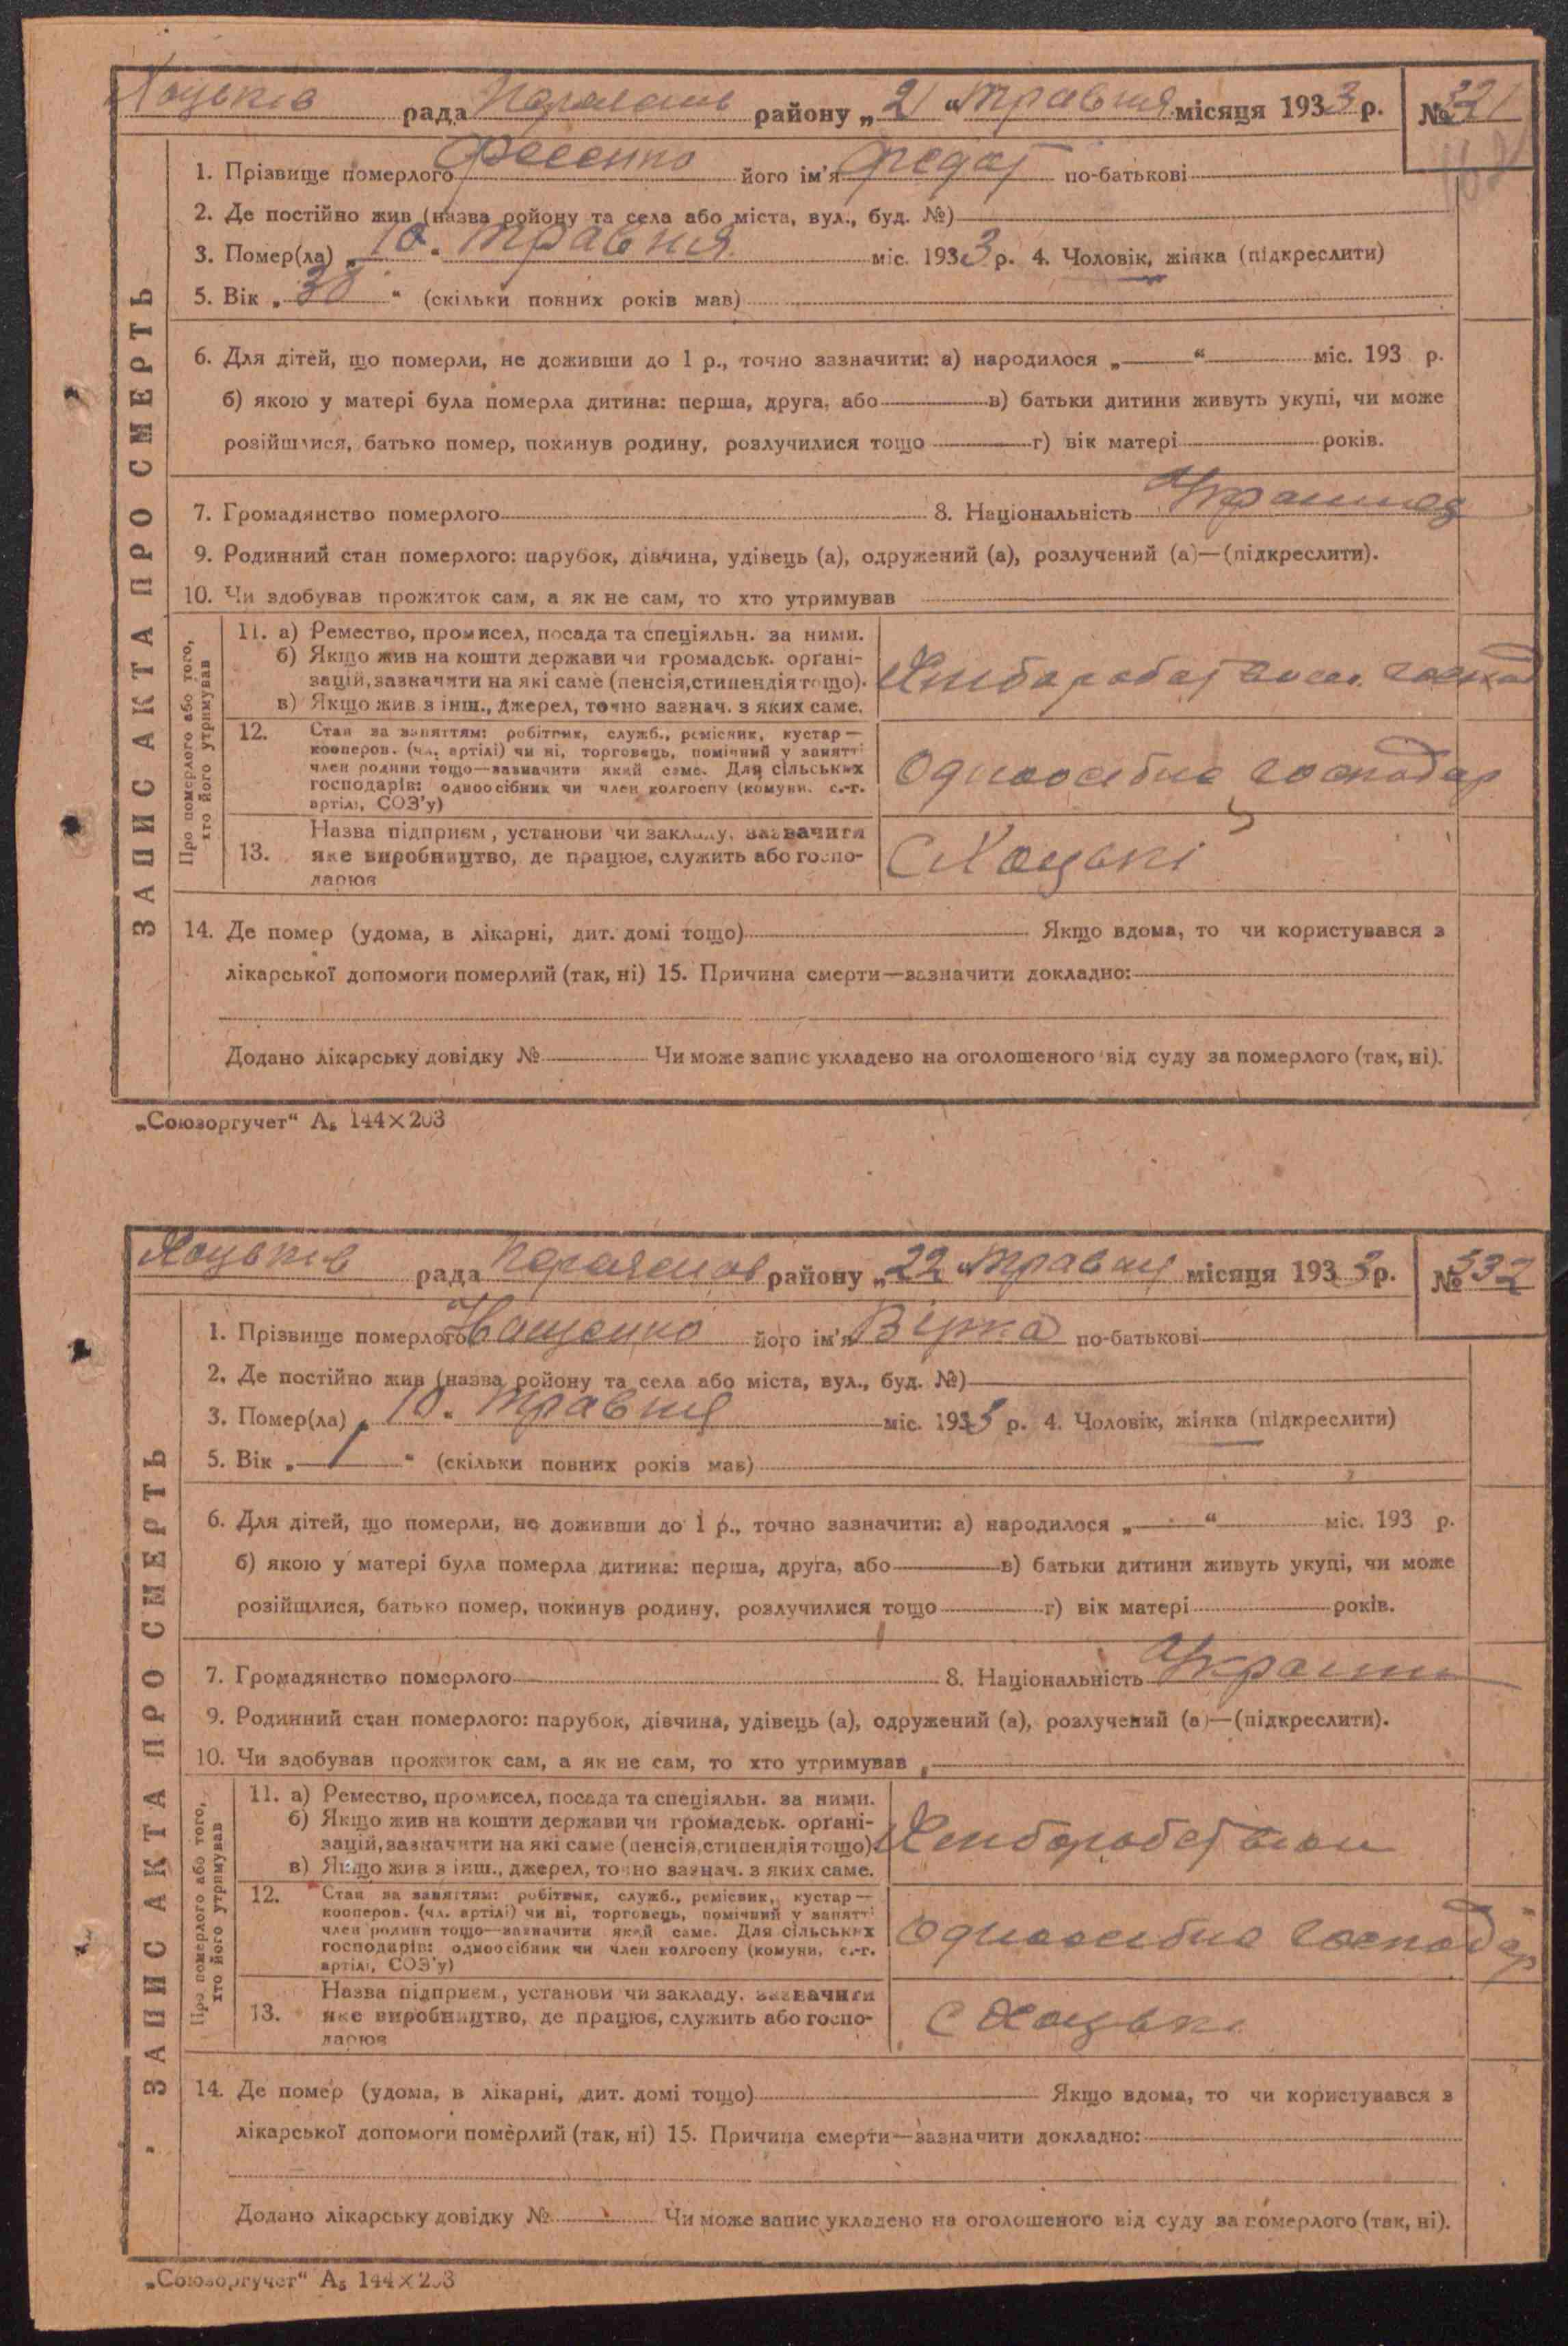 Хоцьків рада Переяслав району „21“ травня місяця 1933 р. № 321
1. Прізвище померлого Фесенко його ім'я Федот по-батькові
2. Де постійно жив (назва ройону та села або міста, вул., буд. №)
3. Помер(ла) „10“ травня міс. 1933 р. 4. Чоловік, жінка (підкреслити)
5. Вік „38“ (скільки повних років мав)
6. Для дітей, що померли, не доживши до 1 р., точно зазначити: а) народилося „ “ міс. 193 р.
б) якою у матері була померла дитина: перша, друга, або в) батьки дитини живуть укупі, чи може
розійшлися, батько помер, покинув родину, розлучилися тощо г) вік матері років.
7. Громадянство померлого 8. Національність Украинец
9. Родинний стан померлого: парубок, дівчина, удівець (а), одружений (а), розлучений (а)—(підкреслити).
10. Чи здобував прожиток сам, а як не сам, то хто утримував
Про померлого або того,
хто його утримував
11. а) Ремество, промисел, посада та спеціяльн. за ними.
б) Якщо жив на кошти держави чи громадськ. органі-
зацій, зазначити на які саме (пенсія, стипендія тощо).
в) Якщо жив з інш., джерел, точно зазнач. з яких саме.
Хлібороб
12. Стан за заняттям: робітник, служб., ремісник, кустар—
кооперов. (чл. артілі) чи ні, торговець, помічний у занятті
член родини тощо—зазначити який саме. Для сільських
господарів: одноосібник чи член колгоспу (комуни, с.-г.
артілі, СОЗ'у)
Одноосібне господар
13. Назва підприєм, установи чи закладу, зазначити
яке виробництво, де працює, служить або госпо-
дарює
С Хоцькі
14. Де помер (удома, в лікарні, дит. домі тощо) Якщо вдома, то чи користувався з
лікарської допомоги померлий (так, ні) 15. Причина смерти—зазначити докладно:
Додано лікарську довідку № Чи може запис укладено на оголошеного від суду за померлого (так, ні).
ЗАПИС АКТА ПРО СМЕРТЬ
„Союзоргучет“ А₅ 144×203
Хоцьків рада Переяслов району „22“ травня місяця 1933 р. № 332
1. Прізвище померлого його ім'я Вірка по-батькові
2. Де постійно жив (назва ройону та села або міста, вул., буд. №)
3. Помер(ла) „10“ травня міс. 1933 р. 4. Чоловік, жінка (підкреслити)
5. Вік „1“ (скільки повних років мав)
6. Для дітей, що померли, не доживши до 1 р., точно зазначити: а) народилося „ “ міс. 193 р.
б) якою у матері була померла дитина: перша, друга, або в) батьки дитини живуть укупі, чи може
розійшлися, батько помер, покинув родину, розлучилися тощо г) вік матері років.
7. Громадянство померлого 8. Національність Украин
9. Родинний стан померлого: парубок, дівчина, удівець (а), одружений (а), розлучений (а)—(підкреслити).
10. Чи здобував прожиток сам, а як не сам, то хто утримував
Про померлого або того,
хто його утримував
11. а) Ремество, промисел, посада та спеціяльн. за ними.
б) Якщо жив на кошти держави чи громадськ. органі-
зацій, зазначити на які саме (пенсія, стипендія тощо).
в) Якщо жив з інш., джерел, точно зазнач. з яких саме.
Хлібороб
12. Стан за заняттям: робітник, служб., ремісник, кустар—
кооперов. (чл. артілі) чи ні, торговець, помічний у занятті
член родини тощо—зазначити який саме. Для сільських
господарів: одноосібник чи член колгоспу (комуни, с.-г.
артілі, СОЗ'у)
Одноосібне господар
13. Назва підприєм, установи чи закладу, зазначити
яке виробництво, де працює, служить або госпо-
дарює
с Хоцькі
14. Де помер (удома, в лікарні, дит. домі тощо) Якщо вдома, то чи користувався з
лікарської допомоги померлий (так, ні) 15. Причина смерти—зазначити докладно:
Додано лікарську довідку № Чи може запис укладено на оголошеного від суду за померлого (так, ні).
ЗАПИС АКТА ПРО СМЕРТЬ
„Союзоргучет“ А₅ 144×203